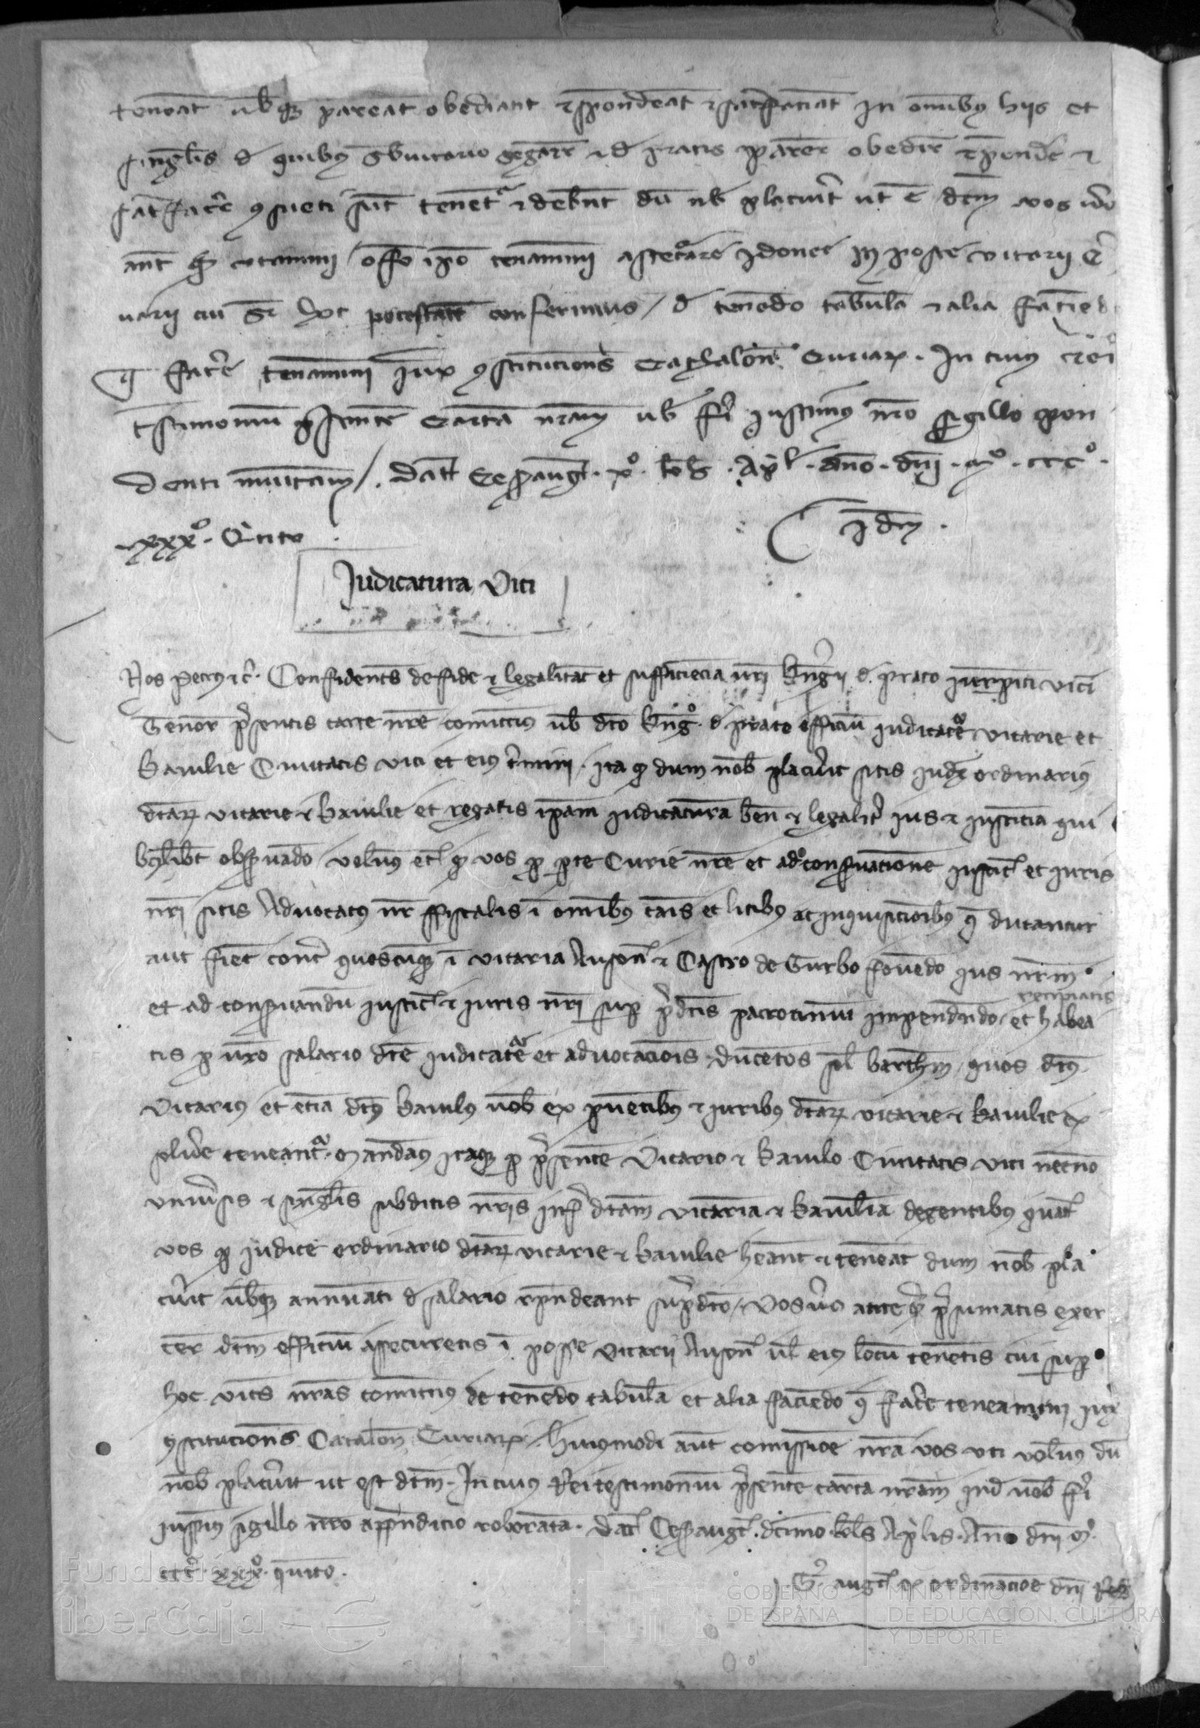 teneant vobisque pareant obediant et respondeant et satisfaciant in omnibus hiis et
singulis de quibus subvicario parere obedire respondere et
satisfacere consueti sunt tenentur et debent dum nobis placuerit ut est dictum vos vero
antequam utamini officio ipso teneamini assecurare idonee in posse vicarii
cui super hoc potestatem conferimus / de tenendo tabulam et alia faciendo
que facere teneamini iuxta constituciones Cathalonie Curiarum. In cuius rei
testimonium presentem cartam nostram vobis fieri iussimus nostro sigillo pen
denti munitam /. Datum Cesarauguste. xº. kalendas. Aprilis. anno. domini. mº. cccº.
xxxº. Quinto
Idem.
Judicatura Vici
Nos Petrus etc. Confidentes de fide et legalitate et sufficiencia vestri Berengarii de prato iurisperiti vici
Tenore presentis carte nostre comittimus vobis dicto Berengario de prato officium iudicature vicarie et
baiulie Civitatis vici et eius termini. ita quod dum nobis placuerit sitis iudex ordinarius
dictarum vicarie et baiulie et regatis ipsam iudicaturam bene et legaliter ius et iusticiam cui
buslibet observando volumus etiam quod vos pro parte Curie nostre et ad conservacionem iusticie et iuris
nostri sitis Advocatus noster fiscalis in omnibus causis et litibus ac inquisicionibus que ducantur
aut fient contra quoscumque in vicaria Ausone et Castro de Gurbo fovendo ius nostrum
et ad conservandum iusticie et iuris nostri super predictis patrocinium impendendo. et habea
recipiatis
tis pro vestro salario dicte iudicature et advocacionis ducentos solidos barchinonenses. quos dictus
Vicarius et etiam dictus baiulus vobis ex proventibus et iuribus dictarum vicarie et baiulie ex
solvere teneantur. mandamus itaque per presentem Vicario et baiulo Civitatis vici necnon
universis et singulis subditis nostris infra dictam vicariam et baiuliam degentibus quatenus
vos pro iudice ordinario dictarum vicarie et baiulie habeant et teneant dum nobis pla
cuerit vobisque annuatim de salario respondeant supradicto / Vos vero antequam presumatis exer
cere dictum officium assecuretis in posse vicarii Ausone vel eius locum tenentis cui super
hoc vices nostras comittimus de tenendo tabulam et alia faciendo que facere teneamini iuxta
constituciones Catalonie Curiarum. huiusmodi autem comissione nostra vos uti volumus dum
nobis placuerit ut est dictum. In cuius Rei testimonium presentem cartam nostram inde vobis fieri
iussimus sigillo nostro appendicio roboratam. Datum Cesarauguste. decimo. kalendas Aprilis. Anno domini mº
cccº. xxxº. quinto.
G. august. ex ordinacione domini Regis
Fundación
iberCaja
GOBIERNO
DE ESPAÑA
MINISTERIO
DE EDUCACIÓN, CULTURA
Y DEPORTE